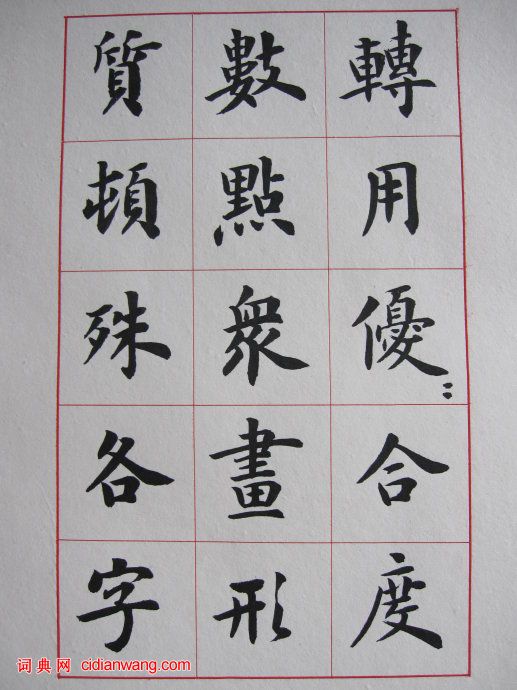 轉用優〻合度
數點衆畫形
質頓殊各字
词典网 cidianwang.com